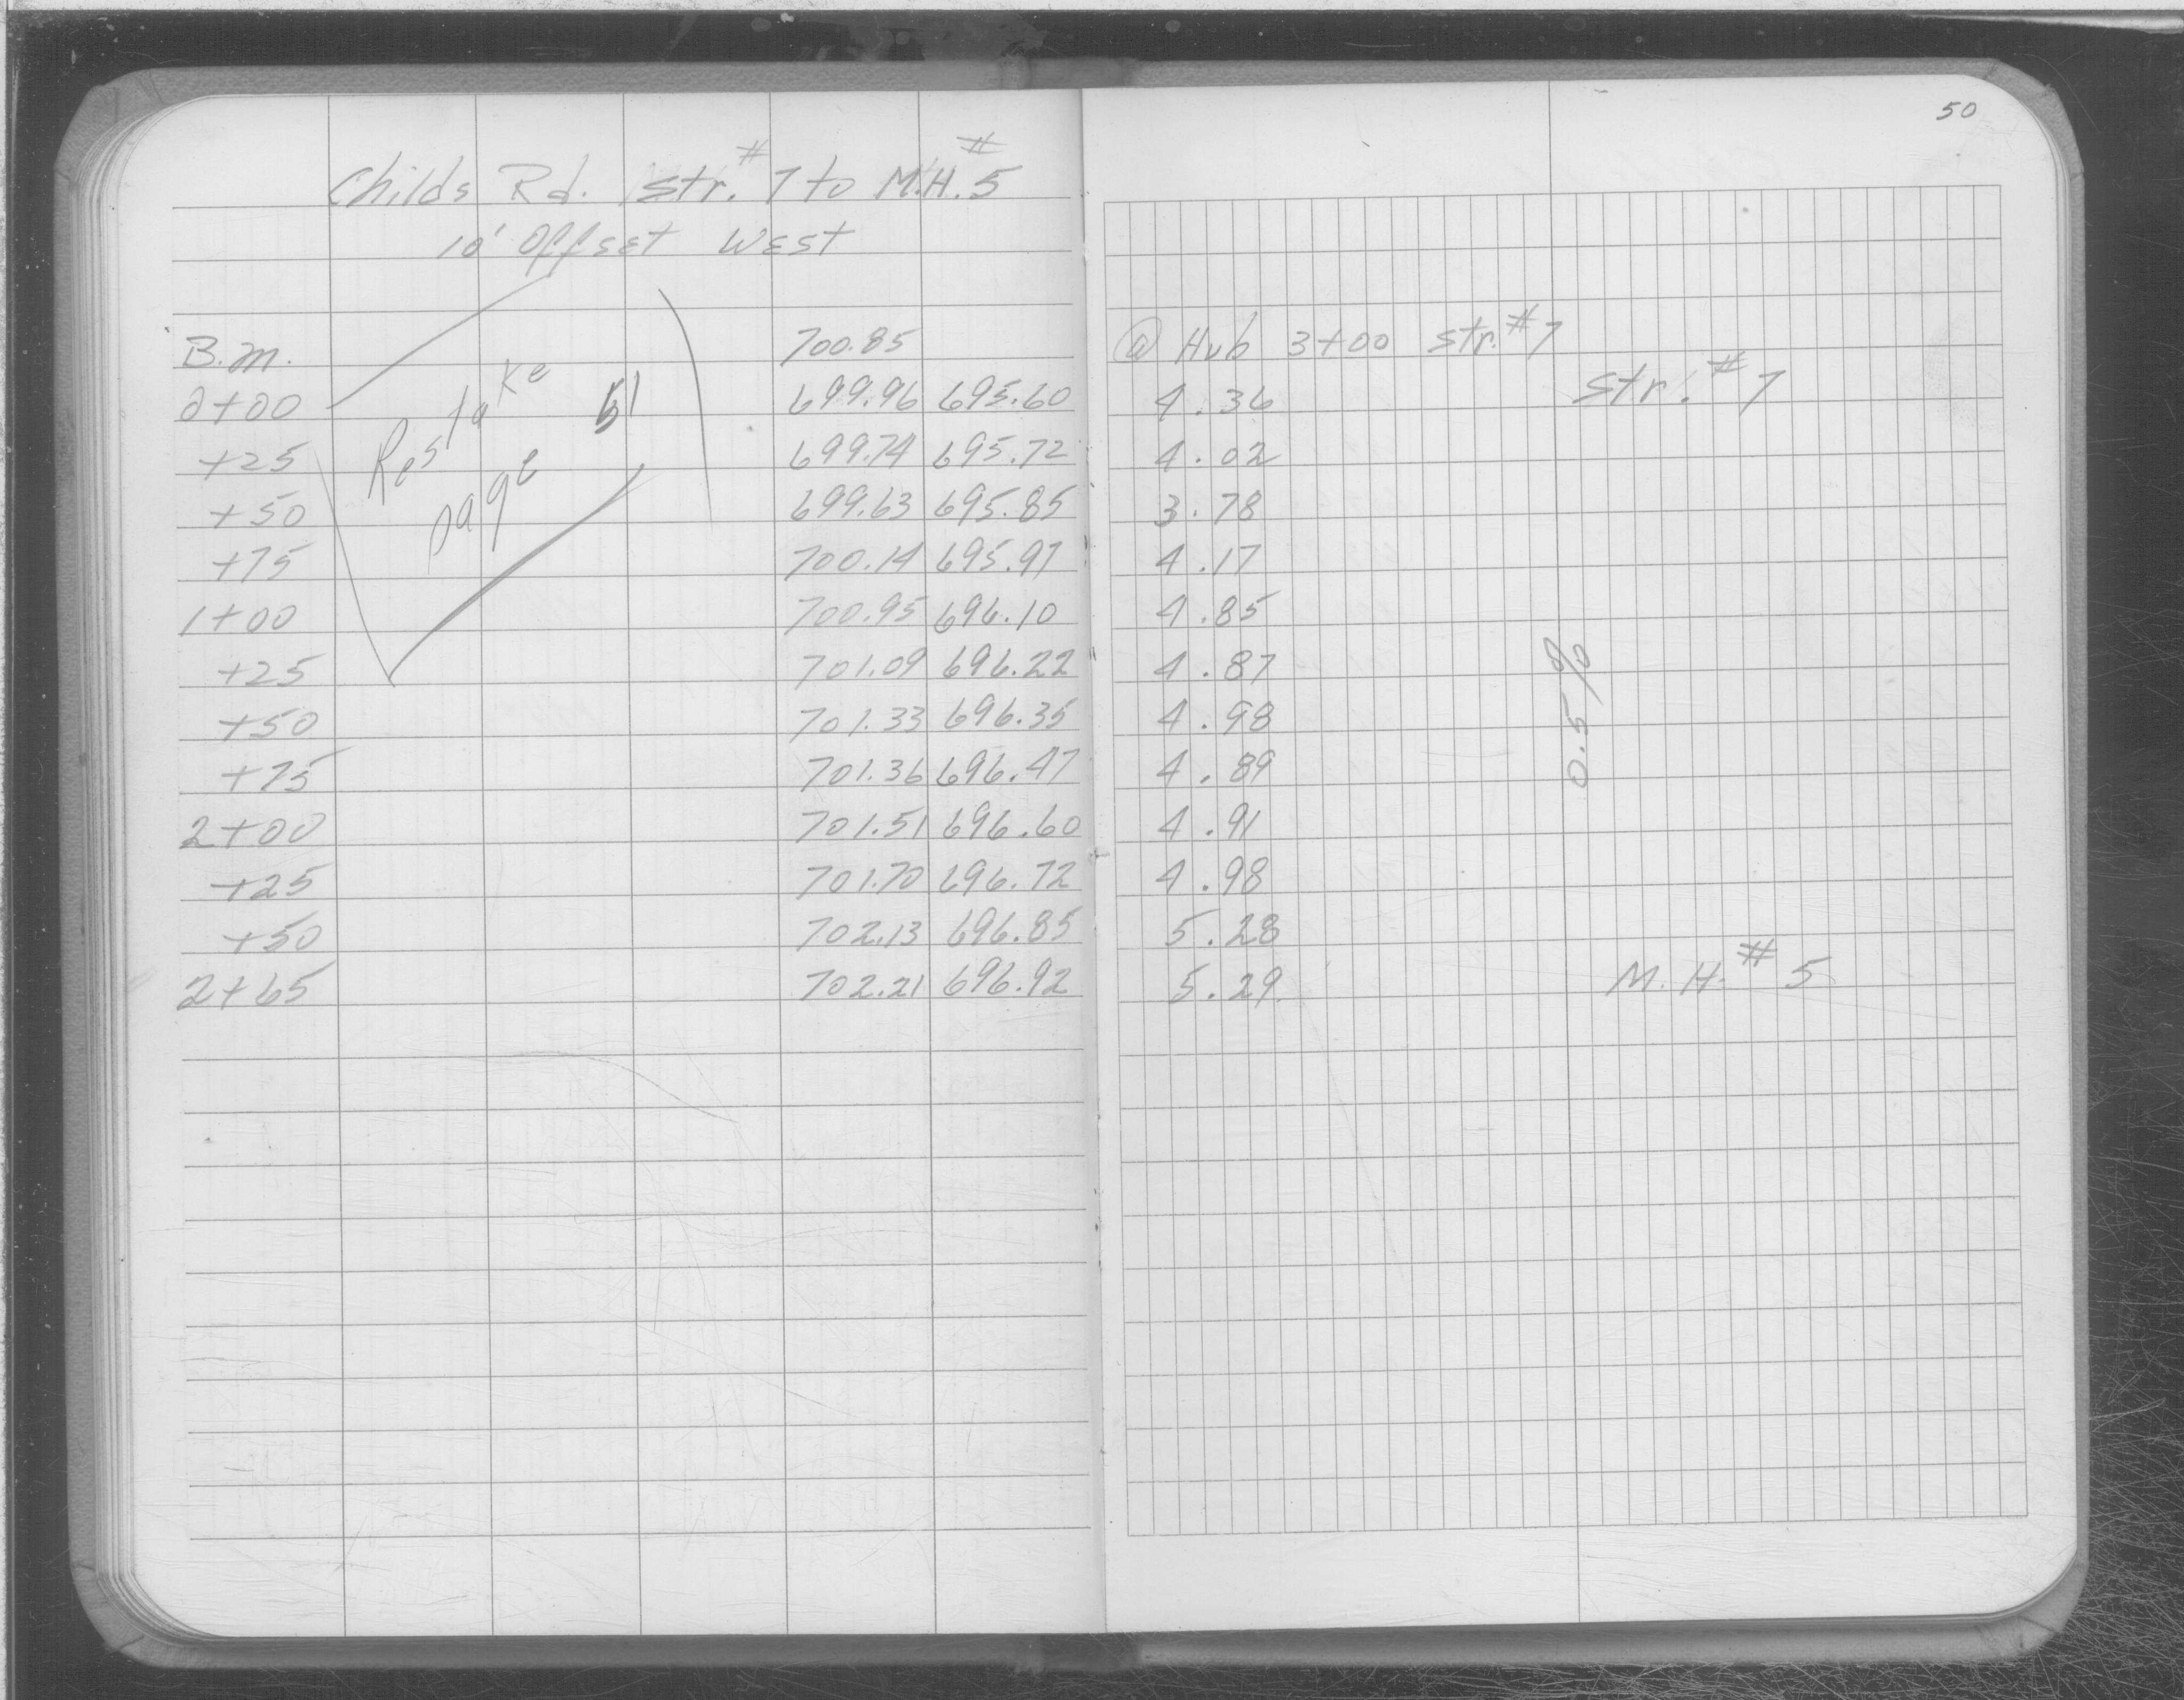 50
Childs Rd. Str. #7 to M.H. #5
10' Offset West
B.M. 700.85 @ Hub 3+00 Str. #7
0+00 699.96 695.60 4.36 Str. #7
+25 699.74 695.72 4.02
+50 699.63 695.85 3.78
+75 700.14 695.97 4.17
1+00 700.95 696.10 4.85
+25 701.09 696.22 4.87
+50 701.33 696.35 4.98
+75 701.36 696.47 4.89
2+00 701.51 696.60 4.91
+25 701.70 696.72 4.98
+50 702.13 696.85 5.28
2+65 702.21 696.92 5.29 M.H. #5
Restake
page 51
0.5%